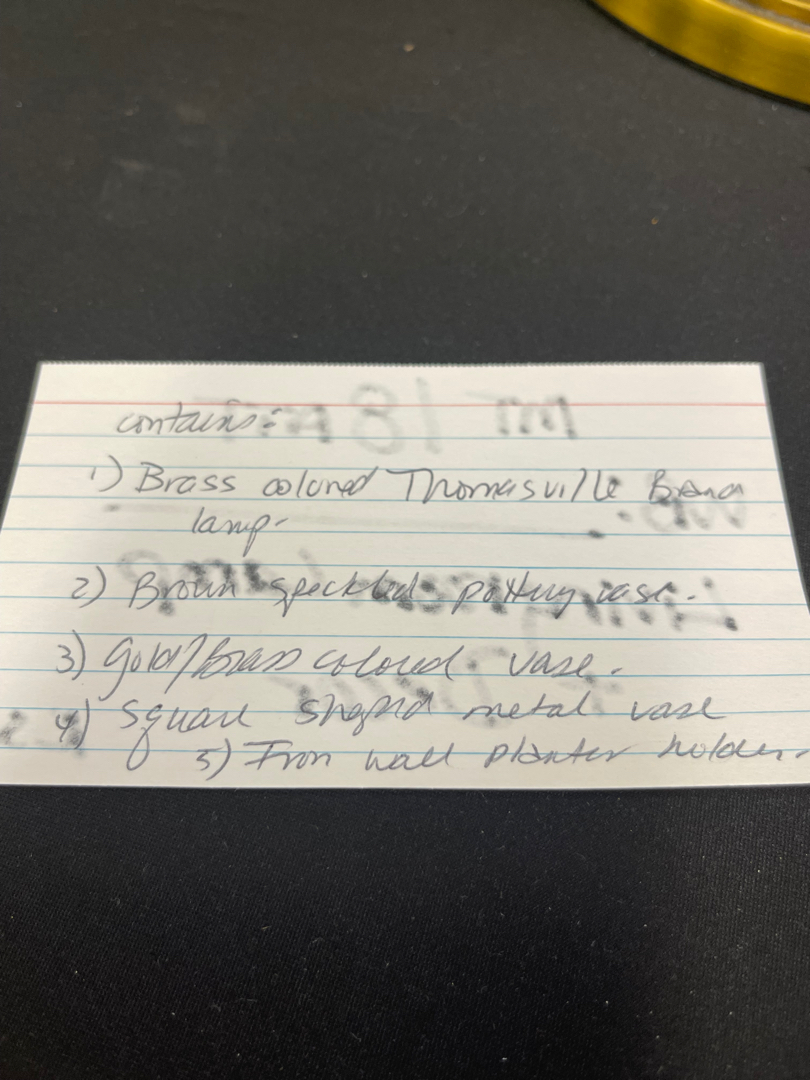 contains:
1) Brass colored Thomasville Brand
lamp.
2) Brown speckled pottery vase.
3) Gold/Brass colored vase.
4) Square shaped metal vase
5) Iron wall planter holder.